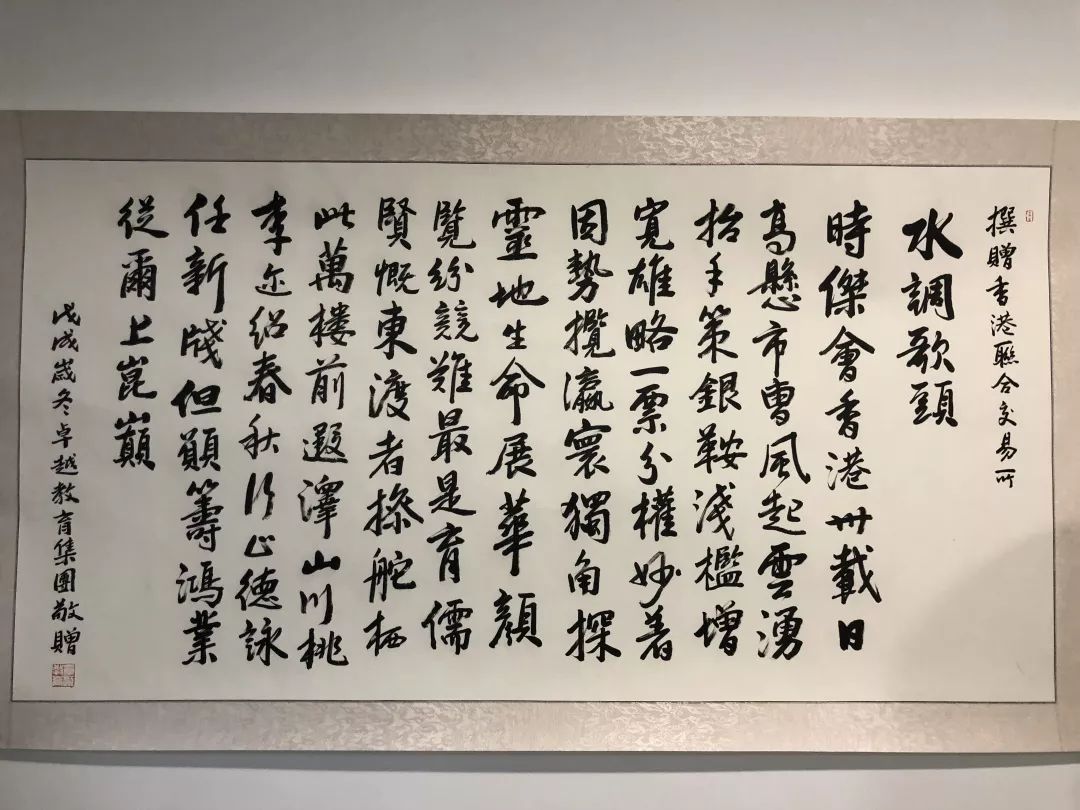 撰贈香港聯合交易所
水調歌頭
時傑會香港卅載日
高懸市曹風起雲湧
抬手策銀鞍淺檻增
寬雄略一票分權妙著
因勢攬瀛寰獨角探
靈地生命展華顏
覽紛競難最是育儒
賢慨東渡者操舵栖
此萬樓前遐澤山川桃
李迩紹春秋行心德詠
任新牋但願籌鴻業
從爾上崑巔
戊戌歲冬卓越教育集團敬贈